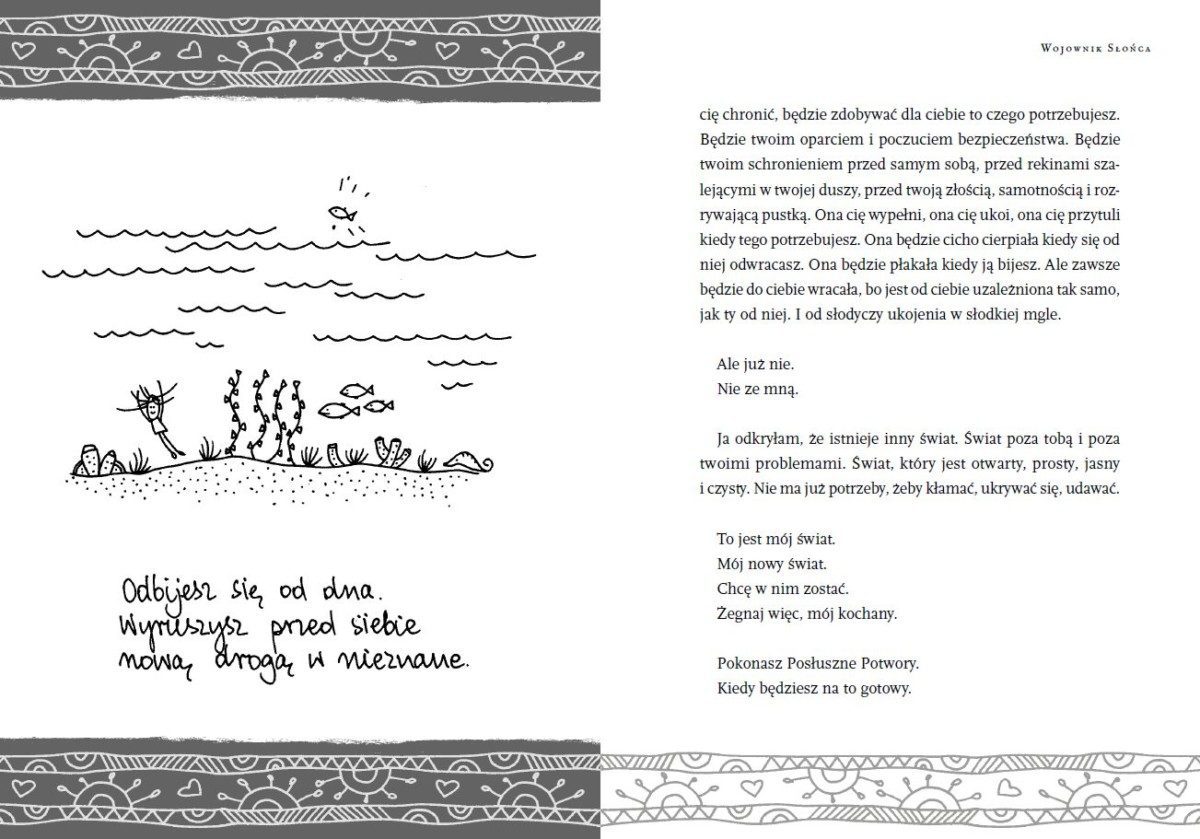 Odbijesz się od dna.
Wyruszysz przed siebie
nową drogą w nieznane.
Wojownik Słońca
cię chronić, będzie zdobywać dla ciebie to czego potrzebujesz.
Będzie twoim oparciem i poczuciem bezpieczeństwa. Będzie
twoim schronieniem przed samym sobą, przed rekinami sza-
lejącymi w twojej duszy, przed twoją złością, samotnością i roz-
rywającą pustką. Ona cię wypełni, ona cię ukoi, ona cię przytuli
kiedy tego potrzebujesz. Ona będzie cicho cierpiała kiedy się od
niej odwracasz. Ona będzie płakała kiedy ją bijesz. Ale zawsze
będzie do ciebie wracała, bo jest od ciebie uzależniona tak samo,
jak ty od niej. I od słodyczy ukojenia w słodkiej mgle.
Ale już nie.
Nie ze mną.
Ja odkryłam, że istnieje inny świat. Świat poza tobą i poza
twoimi problemami. Świat, który jest otwarty, prosty, jasny
i czysty. Nie ma już potrzeby, żeby kłamać, ukrywać się, udawać.
To jest mój świat.
Mój nowy świat.
Chcę w nim zostać.
Żegnaj więc, mój kochany.
Pokonasz Posłuszne Potwory.
Kiedy będziesz na to gotowy.